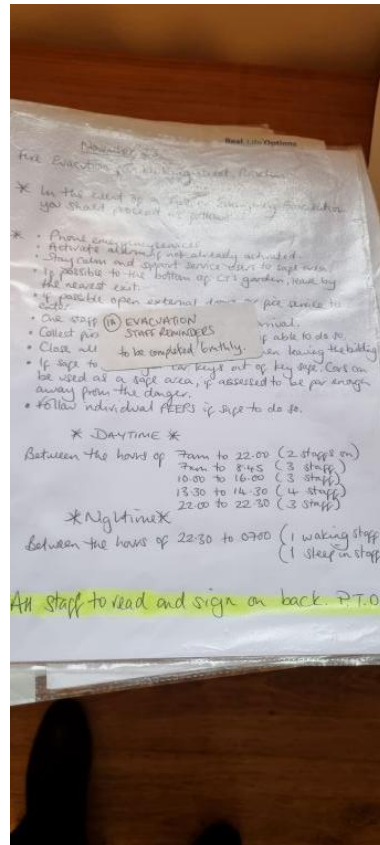 Real Life Options
November
Fire Evacuation
* In the event of a fire or Emergency Evacuation
you should proceed as follows
* • Phone emergency services
• Activate alarm if not already activated.
• Stay calm and support service users to safe area
• If possible to the bottom of garden, leave by
the nearest exit.
• If possible open external for fire service to
enter.
• One staff manual.
• Collect if able to do so.
• Close all when leaving the building
(1A) EVACUATION
STAFF REMINDERS
to be completed 6 monthly.
• If safe to car keys out of key safe. Cars can
be used as a safe area, if assessed to be far enough
away from the danger.
• Follow individual PEEPS if safe to do so.
* DAYTIME *
Between the hours of 7am to 22.00 (2 staffs on)
7am to 8.45 (3 staff)
10.00 to 16.00 (3 staff)
13.30 to 14.30 (4 staff)
22.00 to 22.30 (3 staff)
*Nightime*
Between the hours of 22.30 to 0700 (1 waking staff
(1 sleep in staff
All staff to read and sign on back. P.T.O